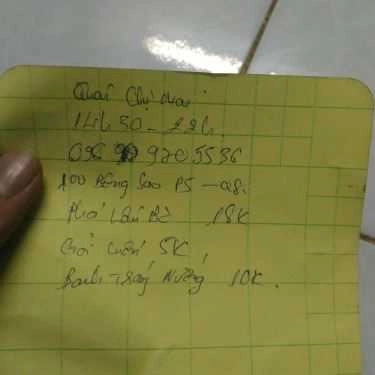 Quán Chị Mai
14h30 - 22h
096 9205536
100 Bông Sao P5 - Q8.
Phá Lấu Bò 18K
Gỏi cuốn 5K
Bánh Tráng Nướng 10K.